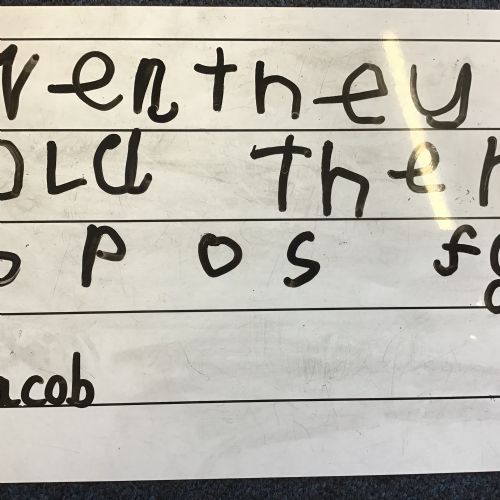 venthey
old ther
o p o s fo
acob